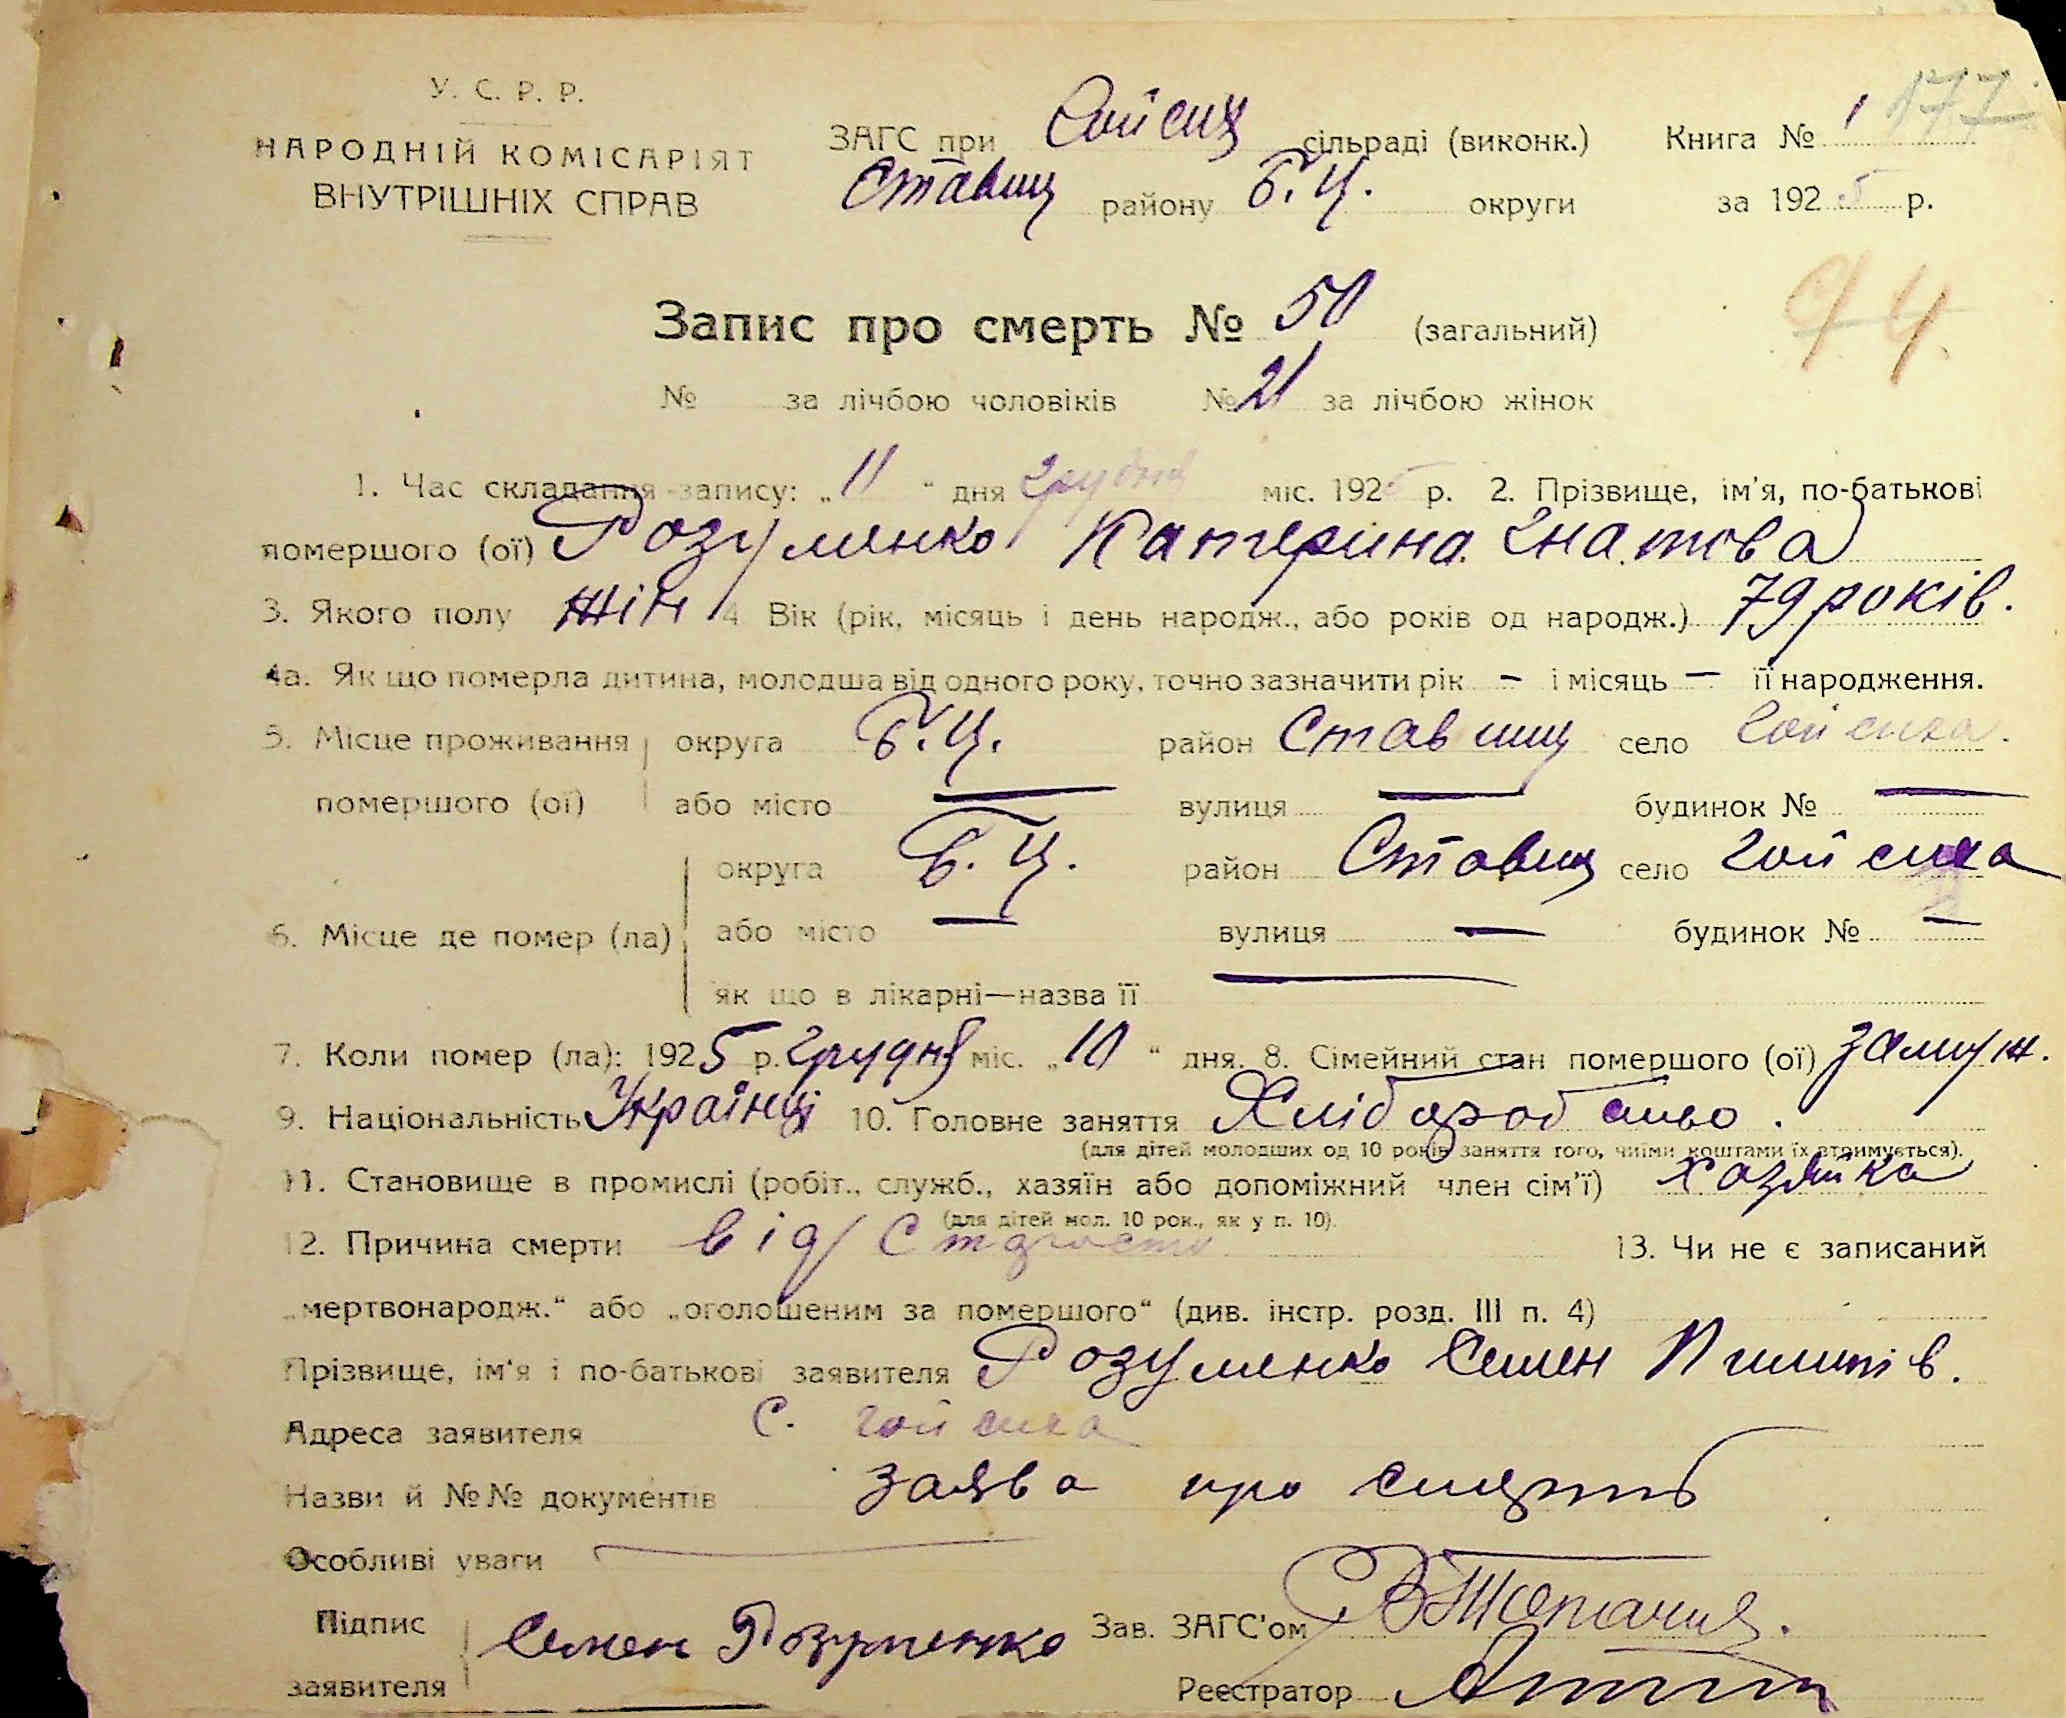 У. С. Р. Р.
НАРОДНІЙ КОМІСАРІЯТ
ВНУТРІШНІХ СПРАВ
ЗАГС при Гойсиц сільраді (виконк.) Книга № 1 177
Ставищ району Б.Ц. округи за 1925 р.
Запис про смерть № 50 (загальний)
№ за лічбою чоловіків № 21 за лічбою жінок
1. Час складання запису: „11“ дня грудня міс. 1925 р. 2. Прізвище, ім'я, по-батькові
помершого (ої) Розуменко Катерина Гнатова
3. Якого полу жін 4 Вік (рік, місяць і день народж., або років од народж.) 79 років.
4а. Як що померла дитина, молодша від одного року, точно зазначити рік – і місяць – її народження.
5. Місце проживання округа Б.Ц. район Ставищ село Гойсиха.
помершого (ої) або місто — вулиця — будинок № —
округа Б.Ц. район Ставищ село Гойсиха
6. Місце де помер (ла) або місто — вулиця — будинок № —
як що в лікарні—назва її —
7. Коли помер (ла): 1925 р. грудня міс. „10“ дня. 8. Сімейний стан помершого (ої) замуж.
9. Національність Українці 10. Головне заняття Хліборобство.
(для дітей молодших од 10 років заняття того, чиїми коштами їх втримується).
11. Становище в промислі (робіт., служб., хазяїн або допоміжний член сім'ї) хазяйка
(для дітей мол. 10 рок., як у п. 10).
12. Причина смерти від старости 13. Чи не є записаний
„мертвонародж.“ або „оголошеним за помершого“ (див. інстр. розд. III п. 4)
Прізвище, ім'я і по-батькові заявителя Розуменко Семен Пилипів.
Адреса заявителя с. Гойсиха
Назви й №№ документів заява про смерть
Особливі уваги —
Підпис Семен Розуменко Зав. ЗАГС'ом
заявителя Реєстратор